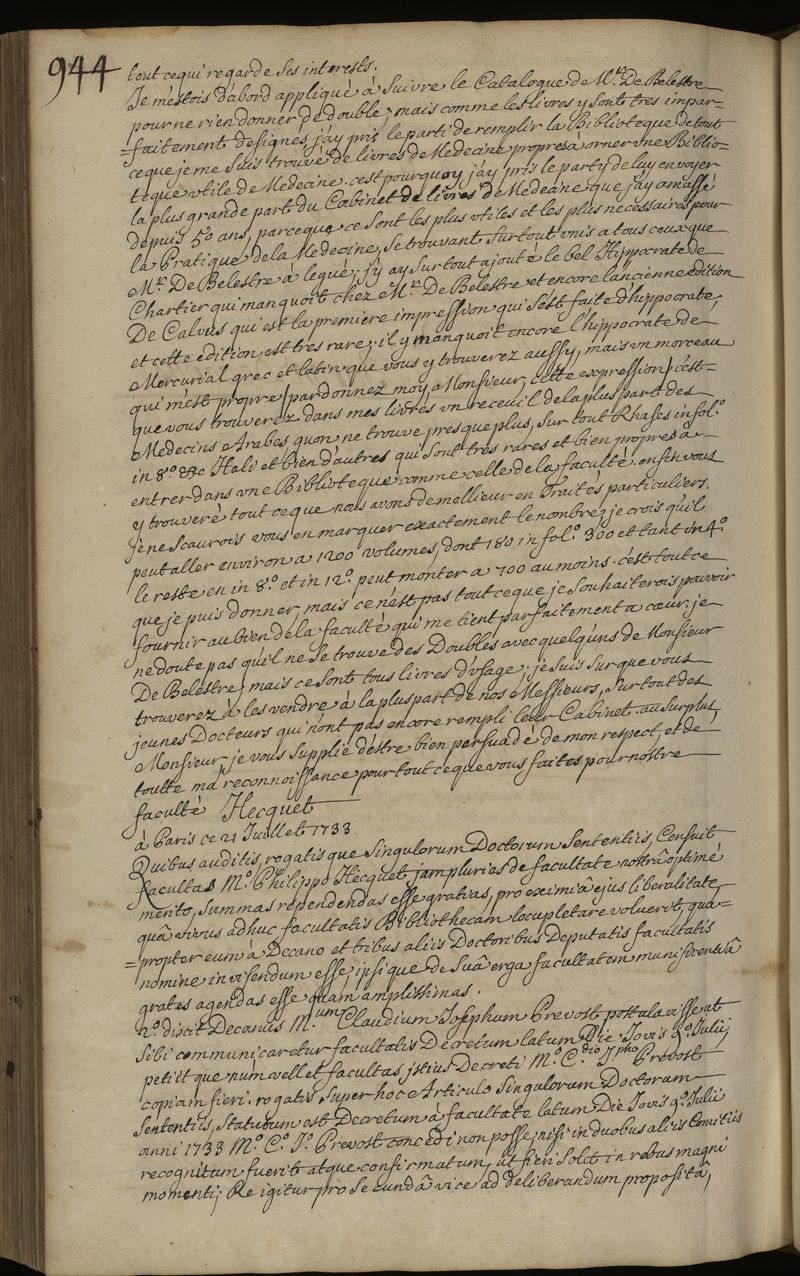 944
tout ce qui regarde ses interests.
Je m'estois d'abord appliqué à suivre le Catalogue de Mr. De Belestre
pour ne rien donner de double, mais comme les livres y sont tres impar=
=faitement designés, j'ay pris le parti de remplir la Biblioteque de tout
ce que je me suis trouvé de livres de Medecine propres à orner une Biblio=
teque utile de Medecine. c'est pourquoy j'ay pris le party de luy envoyer
la plus grande part du Cabinet de livres de Medecine que j'ay amassé
depuis 50 ans, parceque ce sont les plus utiles et les plus necessaires pour
la Pratique de la Medecine, se trouvant surtout unis a tous ceux que
Mr. De Belestre à legué; j'y ay surtout ajouté le bel Hippocrate de
Chartier qui manquoit chez Mr. De Belestre et encore l'ancienne edition
De Calvus qui est la premiere impression qui s'est faite d'hippocrate,
et cette edition est tres rare; il y manquoit encore l'hippocrate de
Mercurial grec et latin que vous y trouverez aussy, mais un morceau
qui m'est propre (pardonnez moy Monsieur, cette expression) c'est=
que vous trouverez dans mes livres un receuil de la plus part des
Medecins Arabes qu'on ne trouve presque plus, sur tout Rhases in fol.o
in 8.o Hali et bien d'autres qui sont tres rares et bien propres à
entrer dans une Biblioteque comme celle de la faculté. enfin vous
y trouveré tout ce que nous avons de mellieur en Traités particuliers.
je ne scaurois vous en marquer exactement le nombre; je crois qu'il
peut aller environ a 1200 volumes, dont 180 in fol.o 300 et tant in 4.o
le reste en in 8.o et in 12.o peut monter a 700 au moins. c'est tout ce
que je puis donner, mais ce n'est pas tout ce que je souhaiterois pouvoir
fournir au bien de la faculté qui me tient parfaitement a cœur; je
ne doute pas qu'il ne se trouve des Doubles avec quelqu'uns de Monsieur
De Belestre, mais ce sont tous livres d'usage; je suis sur que vous
trouverez à les vendre à la pluspart de nos Messieurs, surtout des
jeunes Docteurs qui n'ont pas encore rempli leur Cabinet. au surplus
Monsieur, je vous supplie d'éstre bien persuadé de mon respect, et de
toutte ma reconnoissance pour tout ce que vous faites pour nostre
faculté Hecquet
à Paris ce 21 Juillet 1733
Quibus auditis, rogatisque singulorum Doctorum sententiis, Censuit
facultas Mo. Philippo Hecquet jam pluries de facultate nostrâ optimé
merito, summas rependendas esse gratias, pro eximiâ ejus liberalitate,
quâ vivus adhuc facultatis Bibliothecam locupletare voluerit, qua=
=propter eum à Decano et tribus aliis Doctoribus Deputatis facultatis
nomine invisendum esse, ipsique de suâ erga facultatem munificentiâ
grates agendas esse quam amplissimas.
2.o dixit Decanus M.um Claudium Josephum Prevost postulavisse ut
sibi communicaretur facultatis Decretum latum Die Jovis 9.o Julii,
petiitque num vellet facultas istius Decreti M.o C.dio Jpho Prevost
copiam fieri. rogatis super hoce Articulo singulorum Doctorum
sententiis, Statutum est Decretum à facultate latum Die Jovis 9.o Julii
anni 1733 M.o C.o J.o Prevost concedi non posse, nisi in duobus aliis Comitiis
recognitum fuerit atque confirmatum, ut fieri solet in rebus magni
momenti; Re igitur pro secundâ vice ad deliberandum propositâ,